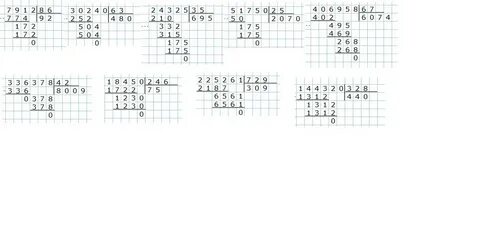 7912 86
774 92
172
172
0
30240 63
252 480
504
504
0
24325 35
210 695
332
315
175
175
0
51750 25
50 2070
175
175
0
406958 67
402 6074
495
469
268
268
0
336378 42
336 8009
0378
378
0
18450 246
1722 75
1230
1230
0
225261 729
2187 309
6561
6561
0
144320 328
1312 440
1312
1312
0